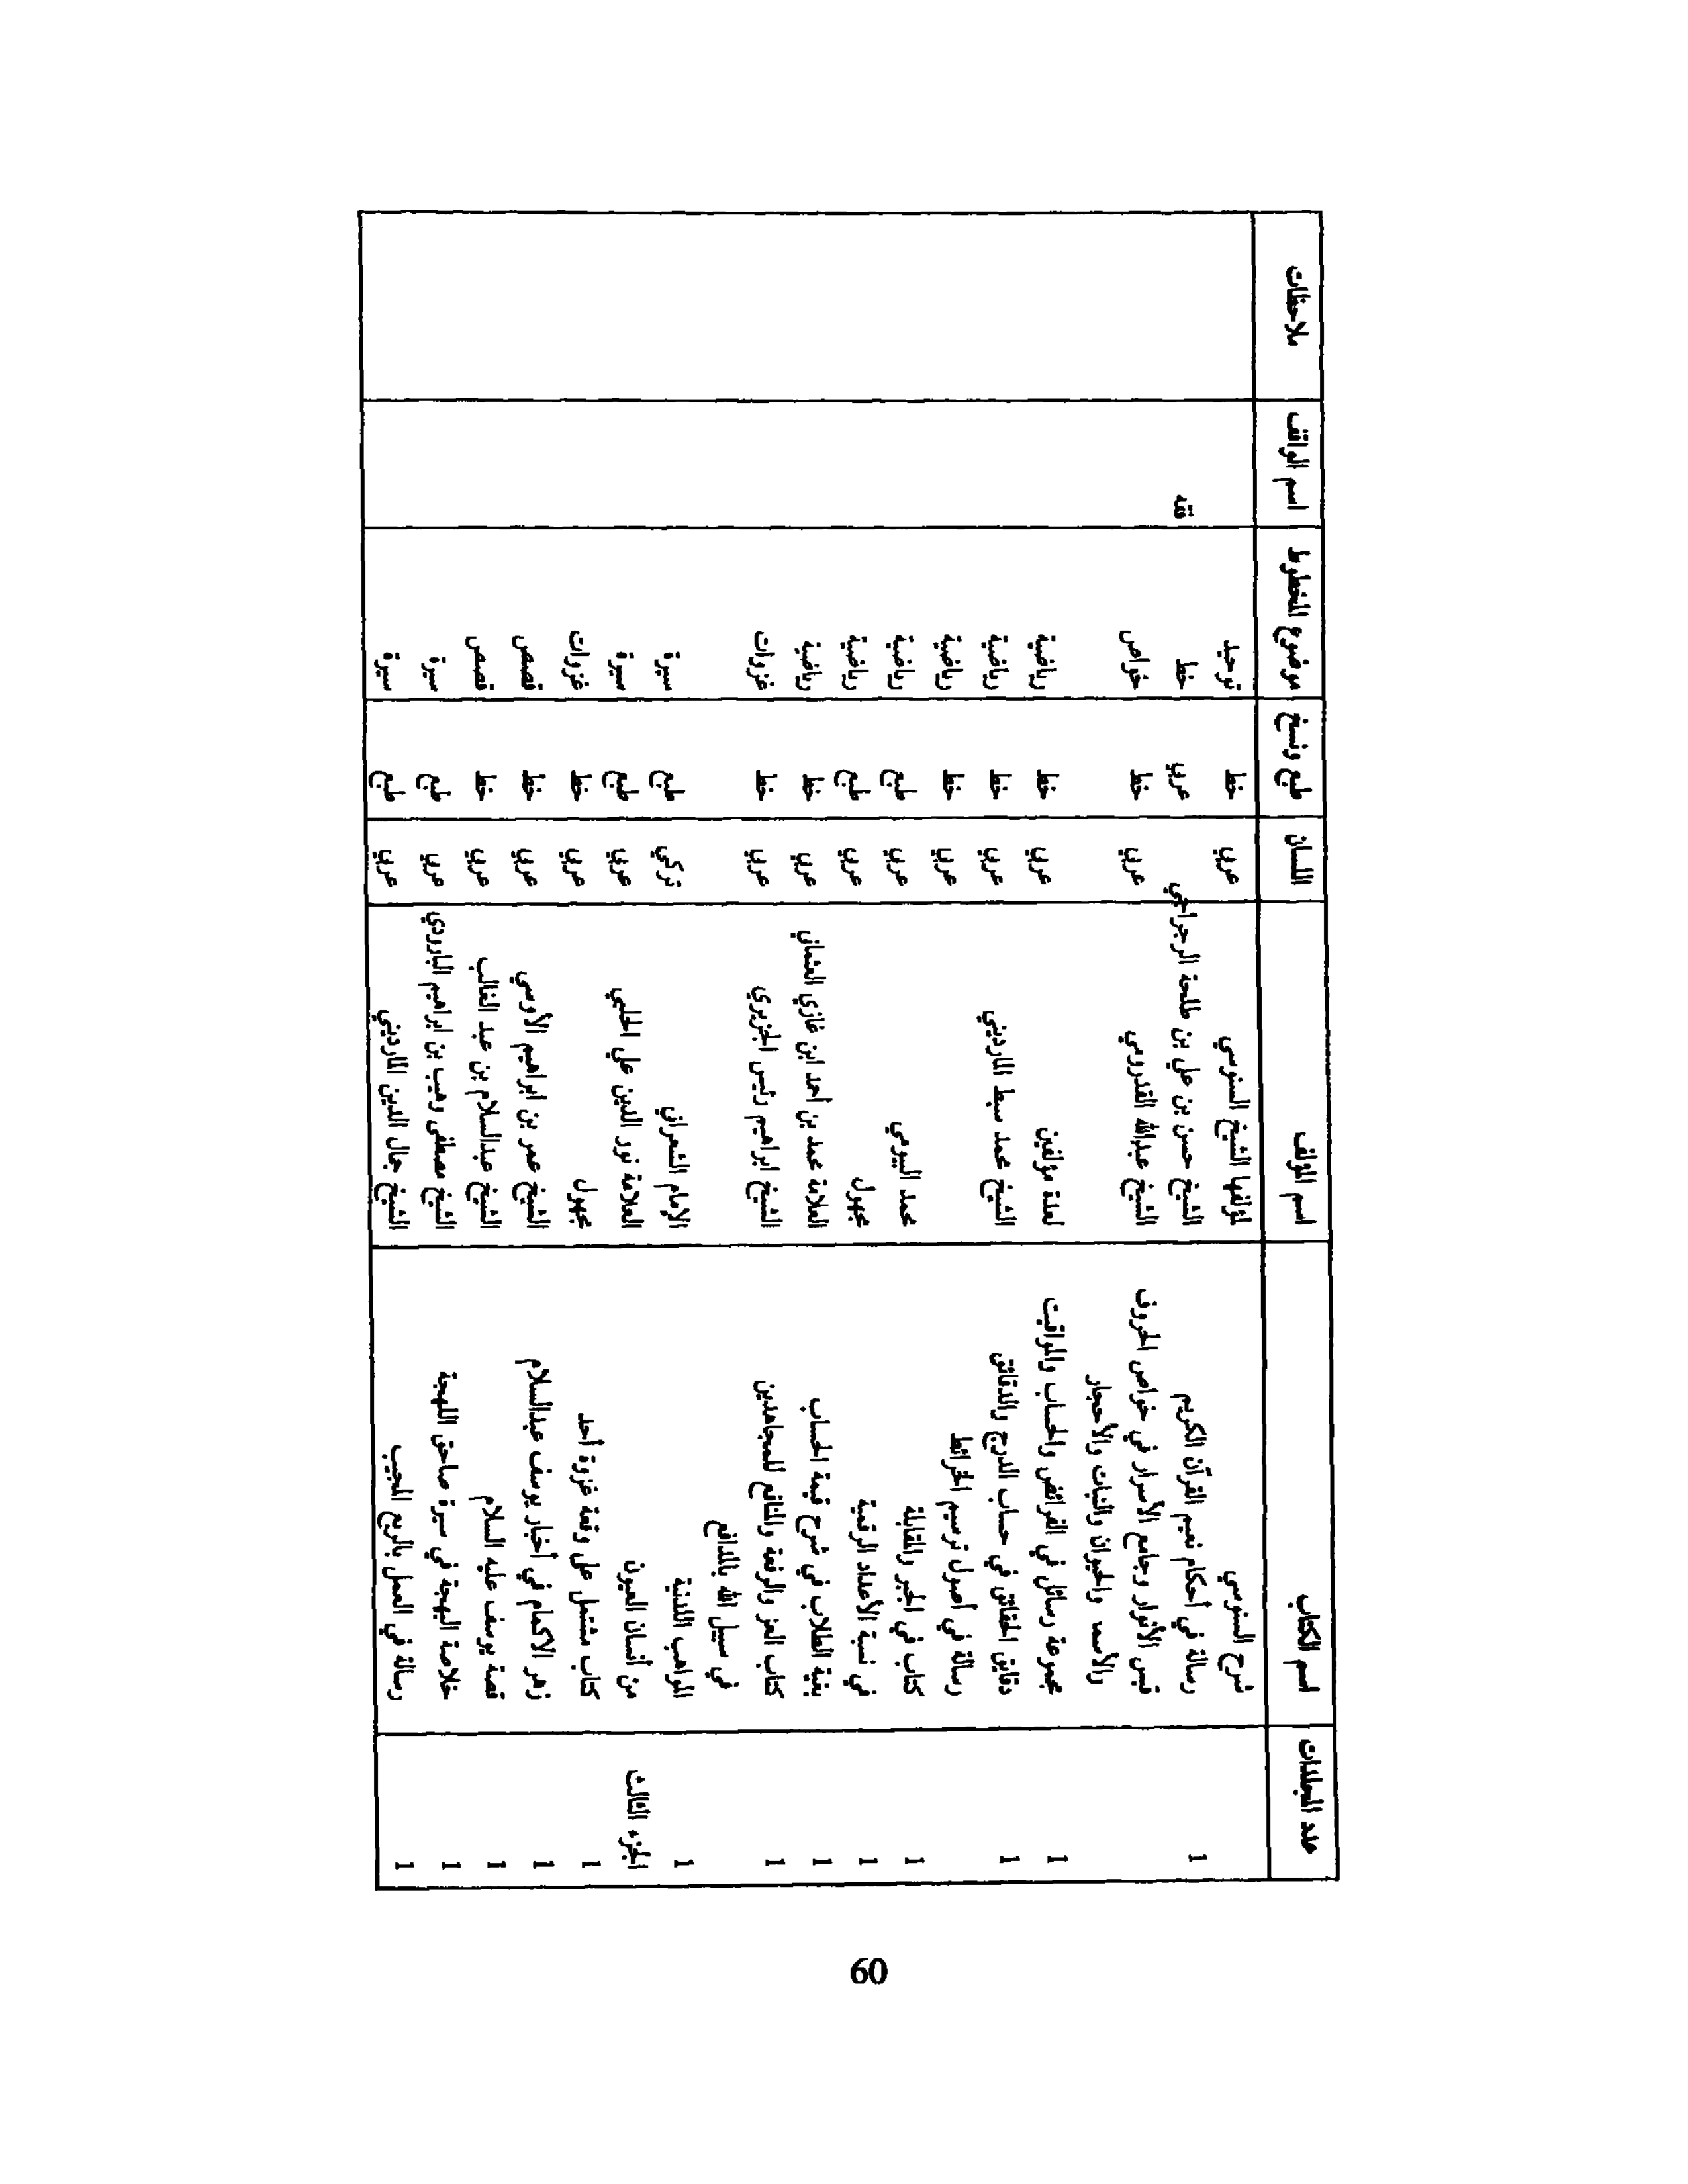 عدد المجلدات اسم الكتاب اسم المؤلف اللسان طبع ونسخ موضوع المخطوط اسم الواقف ملاحظات
شرح السنوسي لمؤلفها الشيخ السنوسي عربي خط توحيد
1 رسالة في أحكام نعيم القرآن الكريم الشيخ حسن بن علي بن طلحة الرجراجي عربي خط فقه
قبس الأنوار وجامع الأسرار في خواص الحروف الشيخ عبدالله القدرومي عربي خط خواص
والأسمد والحيوان والنبات والأحجار
1 مجموعة رسائل في الفرائض والحساب والمواقيت لعدة مؤلفين عربي خط رياضية
1 دقايق الحقائق في حساب الدرج والدقائق الشيخ محمد سبط المارديني عربي خط رياضية
رسالة في أصول ترسيم الخرائط عربي خط رياضية
1 كتاب في الجبر والمقابلة محمد البيومي عربي طبع رياضية
1 في نسبة الأعداد الرقمية مجهول عربي طبع رياضية
1 بغية الطلاب في شرح قيمة الحساب العلامة محمد بن أحمد ابن غازي العثماني عربي خط رياضية
1 كتاب العز والرفعة والمنافع للمجاهدين الشيخ ابراهيم رئيس الجزيري عربي خط غزوات
في سبيل الله بالمدافع
1 المراهب اللدنية الإمام الشعراني تركي طبع سيرة
الجزء الثالث من أنسان العيون العلامة نور الدين علي الحلبي عربي طبع سيرة
1 كتاب مشتمل على وقعة غزوة أحد مجهول عربي خط غزوات
1 زهر الاكمام في أخبار يوسف عبدالسلام الشيخ عمر بن ابراهيم الأوسي عربي خط قصص
1 قصة يوسف عليه السلام الشيخ عبدالسلام بن عبد الغالب عربي خط قصص
1 خلاصة البهجة في سيرة صاحق اللهجة الشيخ مصطفى وهيب بن ابراهيم البارودي عربي طبع سيرة
1 رسالة في العمل بالربع المجيب الشيخ جمال الدين المارديني عربي طبع سيرة
60